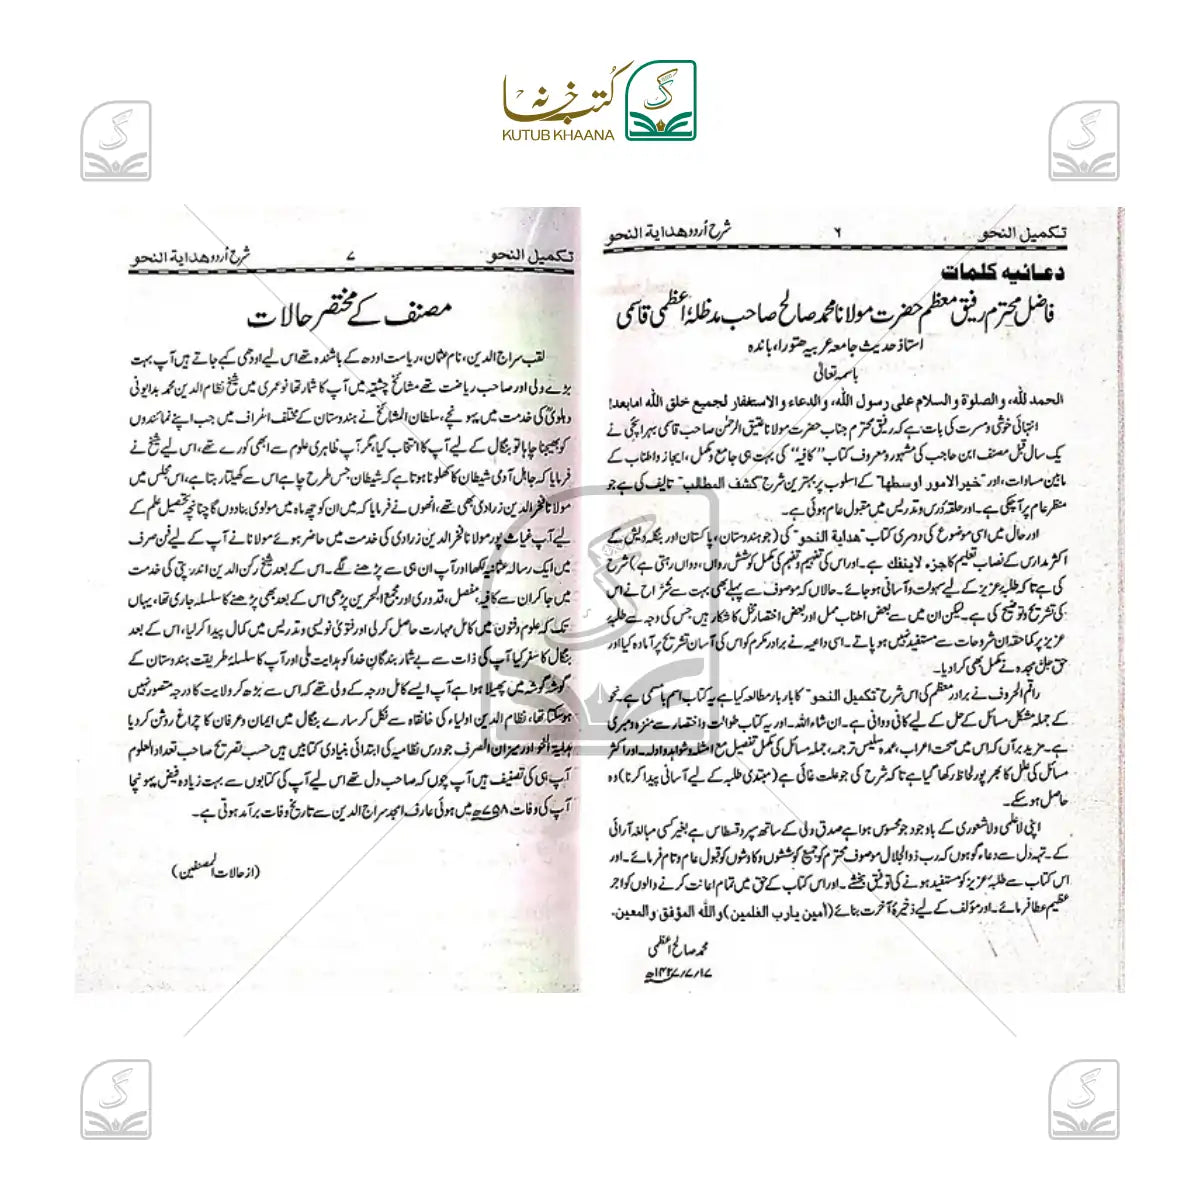 کتب خانہ
KUTUB KHAANA
تکمیل النحو ۶ شرح اُردو هداية النحو
دعائیہ کلمات
فاضل محترم رفیق معظم حضرت مولانا محمد صالح صاحب مدظلہٗ اعظمی قاسمی
استاذ حدیث جامعہ عربیہ ھتورا، باندہ
باسمہ تعالیٰ
الحمد للہ، والصلوة والسلام علی رسول اللہ، والدعاء والاستغفار لجمیع خلق اللہ امابعد!
انتہائی خوشی ومسرت کی بات ہے کہ رفیق محترم جناب حضرت مولانا عتیق الرحمٰن صاحب قاسمی بہرائچی نے
یک سال قبل مصنف ابن حاجب کی مشہور ومعروف کتاب "کافیہ" کی بہت ہی جامع ومکمل، ایجاز واطناب کے
مابین مساوات، اور "خیر الامور اوسطها" کے اسلوب پر بہترین شرح "کشف المطالب" تالیف کی ہے جو
منظر عام پر آچکی ہے۔ اور حلقۂ درس وتدریس میں مقبول عام ہوئی ہے۔
اور حال میں اسی موضوع کی دوسری کتاب "هداية النحو" کی (جو ہندوستان، پاکستان اور بنگلہ دیش کے
اکثر مدارس کے نصاب تعلیم کا جزء لاینفک ہے۔ اور اس کی تفہیم وتفہم کی مکمل کوشش رواں، دواں رہتی ہے) شرح
کی ہے تاکہ طلبۂ عزیز کے لیے سہولت وآسانی ہوجائے۔ حالاں کہ موصوف سے پہلے بھی بہت سے شرّاح نے اس
کی تشریح وتوضیح کی ہے۔ لیکن ان میں سے بعض اطناب ممل اور بعض اختصار مخل کا شکار ہیں، جس کی وجہ سے طلبۂ
عزیز پر کماحقہ ان شروحات سے مستفید نہیں ہو پاتے۔ اسی داعیہ نے برادر مکرم کو اس کی آسان تشریح پر آمادہ کیا اور
حق جل مجدہ نے مکمل بھی کرادیا۔
راقم الحروف نے برادر معظم کی اس شرح "تکمیل النحو" کا بار بار مطالعہ کیا ہے یہ کتاب اسم بامسمی ہے۔ نحو
کے جملہ مشکل مسائل کے حل کے لیے کافی ووافی ہے۔ ان شاء اللہ۔ اور یہ کتاب طوالت واختصار سے منزہ ومبری
ہے۔ مزید برآں کہ اس میں صحت اعراب، عمدہ سلیس ترجمہ، جملہ مسائل کی مکمل تفصیل مع امثلہ وشواہد وادلہ۔ اور اکثر
مسائل کی علل کا بھر پور لحاظ رکھا گیا ہے تاکہ شرح کی جو علت غائی ہے (مبتدی طلبہ کے لیے آسانی پیدا کرنا) وہ
حاصل ہوسکے۔
اپنی لاعلمی ولاشعوری کے باوجود جو محسوس ہوا ہے صدق دلی کے ساتھ سپرد قسطاس ہے بغیر کسی مبالغہ آرائی
کے۔ تہہ دل سے دعاء گو ہوں کہ رب ذوالجلال موصوف محترم کو جمیع کوششوں وکاوشوں کو قبول عام وتام فرمائے۔ اور
اس کتاب سے طلبۂ عزیز کو مستفید ہونے کی توفیق بخشے۔ اور اس کتاب کے حق میں تمام اعانت کرنے والوں کو اجر
عظیم عطا فرمائے۔ اور مؤلف کے لیے ذخیرۂ آخرت بنائے (آمین یارب العٰلمین) والله المؤفق والمعین.
محمد صالح اعظمی
۱۷/۷/۱۴۲۷ھ
تکمیل النحو ۷ شرح اُردو هداية النحو
مصنف کے مختصر حالات
لقب سراج الدین، نام عثمان، ریاست اودھ کے باشندہ تھے اس لیے اودھی کہے جاتے ہیں آپ بہت
بڑے ولی اور صاحب ریاضت تھے مشائخ چشتیہ میں آپ کا شمار تھا نو عمری میں شیخ نظام الدین محمد بدایونی
دہلویؒ کی خدمت میں پہونچے، سلطان المشائخ نے ہندوستان کے مختلف اطراف میں جب اپنے نمائندوں
کو بھیجنا چاہا تو بنگال کے لیے آپ کا انتخاب کیا، مگر آپ ظاہری علوم سے ابھی کورے تھے، اس لیے شیخ نے
فرمایا کہ جاہل آدمی شیطان کا کھلونا ہوتا ہے کہ شیطان جس طرح چاہے اس سے کھیلتا رہتا ہے، اس مجلس میں
مولانا فخر الدین زرادی بھی تھے، انھوں نے فرمایا کہ میں ان کو چھ ماہ میں مولوی بنادوں گا چنانچہ تحصیل علم کے
لیے آپ غیاث پور مولانا فخر الدین زرادی کی خدمت میں حاضر ہوئے مولانا نے آپ کے لیے فن صرف
میں ایک رسالہ عثمانیہ لکھا اور آپ ان ہی سے پڑھنے لگے۔ اس کے بعد شیخ رکن الدین اندرپتی کی خدمت
میں جاکر ان سے کافیہ، مفصل، قدوری اور مجمع البحرین پڑھی اس کے بعد بھی پڑھنے کا سلسلہ جاری تھا، یہاں
تک کہ علوم وفنون میں کامل مہارت حاصل کرلی اور فتویٰ نویسی وتدریس میں کمال پیدا کرلیا، اس کے بعد
بنگال کا سفر کیا آپ کی ذات سے بے شمار بندگانِ خدا کو ہدایت ملی اور آپ کا سلسلۂ طریقت ہندوستان کے
گوشہ گوشہ میں پھیلا ہوا ہے آپ ایسے کامل درجہ کے ولی تھے کہ اس سے بڑھ کر ولایت کا درجہ متصور نہیں
ہوسکتا تھا، نظام الدین اولیاء کی خانقاہ سے نکل کر سارے بنگال میں ایمان وعرفان کا چراغ روشن کردیا
ہدایۃ النحو اور میزان الصرف جو درس نظامیہ کی ابتدائی بنیادی کتابیں ہیں حسب تصریح صاحب تعداد العلوم
آپ ہی کی تصنیف ہیں آپ چوں کہ صاحب دل تھے اس لیے آپ کی کتابوں سے بہت زیادہ فیض پہونچا
آپ کی وفات ۷۵۸ھ میں ہوئی عارف امجد سراج الدین سے تاریخ وفات برآمد ہوتی ہے۔
(از حالات المصنفین)